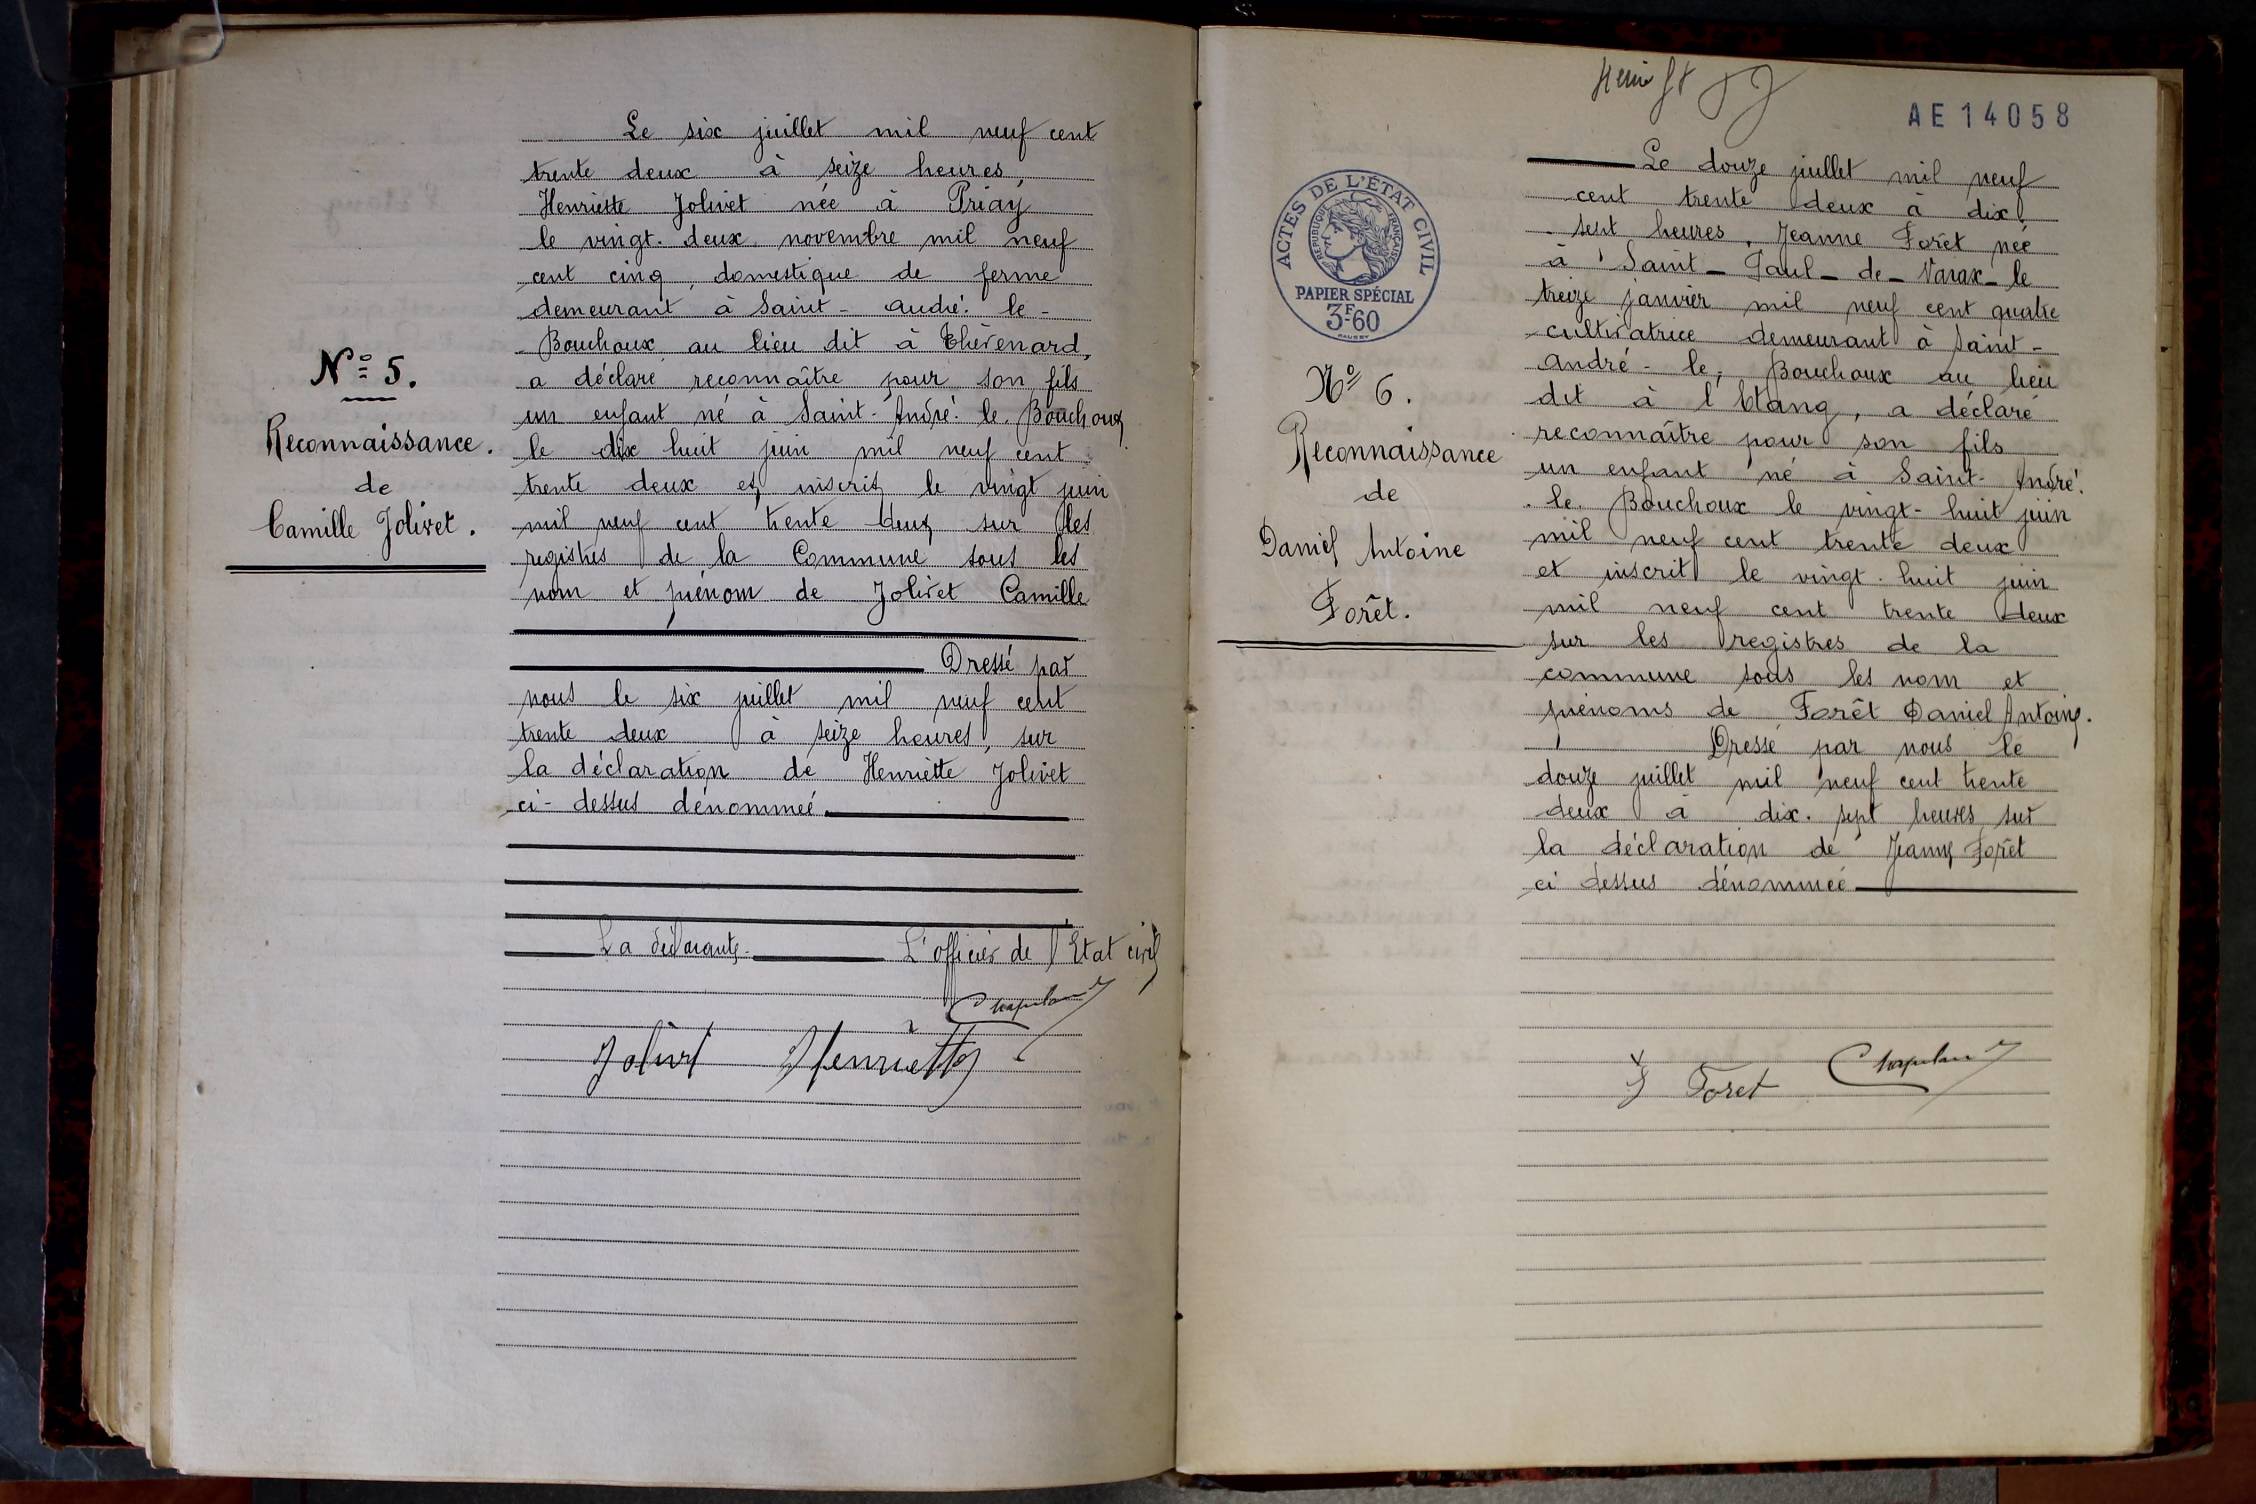 N° 5.
Reconnaissance.
de
Camille Jolivet.
Le six juillet mil neuf cent
trente deux à seize heures,
Henriette Jolivet née à Priay
le vingt-deux novembre mil neuf
cent cinq, domestique de ferme
demeurant à Saint-André-le-
Bouchoux au lieu dit à Thévenard,
a déclaré reconnaître pour son fils
un enfant né à Saint-André-le-Bouchoux
le dix huit juin mil neuf cent
trente deux et inscrit le vingt juin
mil neuf cent trente deux sur les
registres de la Commune sous les
nom et prénom de Jolivet Camille
Dressé par
nous le six juillet mil neuf cent
trente deux à seize heures, sur
la déclaration de Henriette Jolivet
ci-dessus dénommée.
La déclarante. L'officier de l'Etat civil
Jolivet Henriette
AE14058
ACTES DE L'ÉTAT CIVIL
RÉPUBLIQUE FRANÇAISE
PAPIER SPÉCIAL
3F60
N° 6.
Reconnaissance
de
Daniel Antoine
Forêt.
Le douze juillet mil neuf
cent trente deux à dix-
sept heures, Jeanne Forêt née
à Saint-Paul-de-Varax-le
treize janvier mil neuf cent quatre
cultivatrice demeurant à Saint-
André-le-Bouchoux au lieu
dit à l'Etang, a déclaré
reconnaître pour son fils
un enfant né à Saint-André-
le-Bouchoux le vingt-huit juin
mil neuf cent trente deux
et inscrit le vingt-huit juin
mil neuf cent trente deux
sur les registres de la
commune sous les nom et
prénoms de Forêt Daniel Antoine.
Dressé par nous le
douze juillet mil neuf cent trente
deux à dix-sept heures sur
la déclaration de Jeanne Forêt
ci dessus dénommée
J Foret